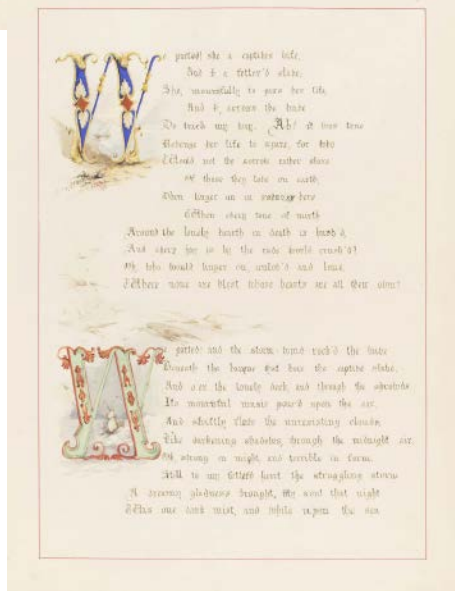 We parted! she a captive wife,
And I a fetter'd slave;
She, mournfully to pass her life,
And I, across the wave
To my Ah! it were
her life to for who
Would not the rather
they love on earth,
Then linger on in here
When every tone of mirth
Around the lonely hearth in death is hush'd,
And every joy is by the rude world crush'd?
Oh, who would linger on, and lone,
Where none are blest whose hearts are all their own?
We parted: and the storm wind rock'd the wave
Beneath the barque that bore the captive slave,
And o'er the lonely deck and through the shrouds
Its mournful music pour'd upon the ear.
And swiftly the clouds,
Like darkening shadows through the midnight air.
Oh, strong in might, and terrible in form.
Still to my fetter'd heart the struggling storm
A gladness brought, My soul that night
Was one dark mist, and while upon the sea